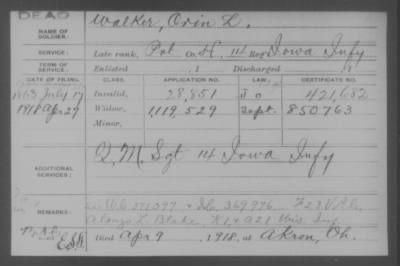 DEAD
NAME OF SOLDIER: Walker, Orin L.
SERVICE: Late rank, Pvt Co. H, 14 Reg Iowa Infy
TERM OF SERVICE: Enlisted , 1 Discharged , 1
DATE OF FILING. CLASS. APPLICATION NO. LAW. CERTIFICATE NO.
1863 July 17 Invalid, 28,851 421,682
1918 Apr 29 Widow, 1,119,529 Sept. 850,763
Minor,
ADDITIONAL SERVICES: Q.M. Sgt 14 Iowa Infy
REMARKS: W.C. 271097
Alonzo L Blake, K 1 & A 21 Wis. Inf.
Died Apr 9, 1918, at Akron, Oh.